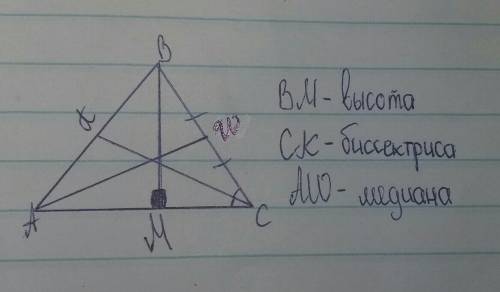 B
K
Ю
A
M
C
BM - высота
CK - биссектриса
AЮ - медиана